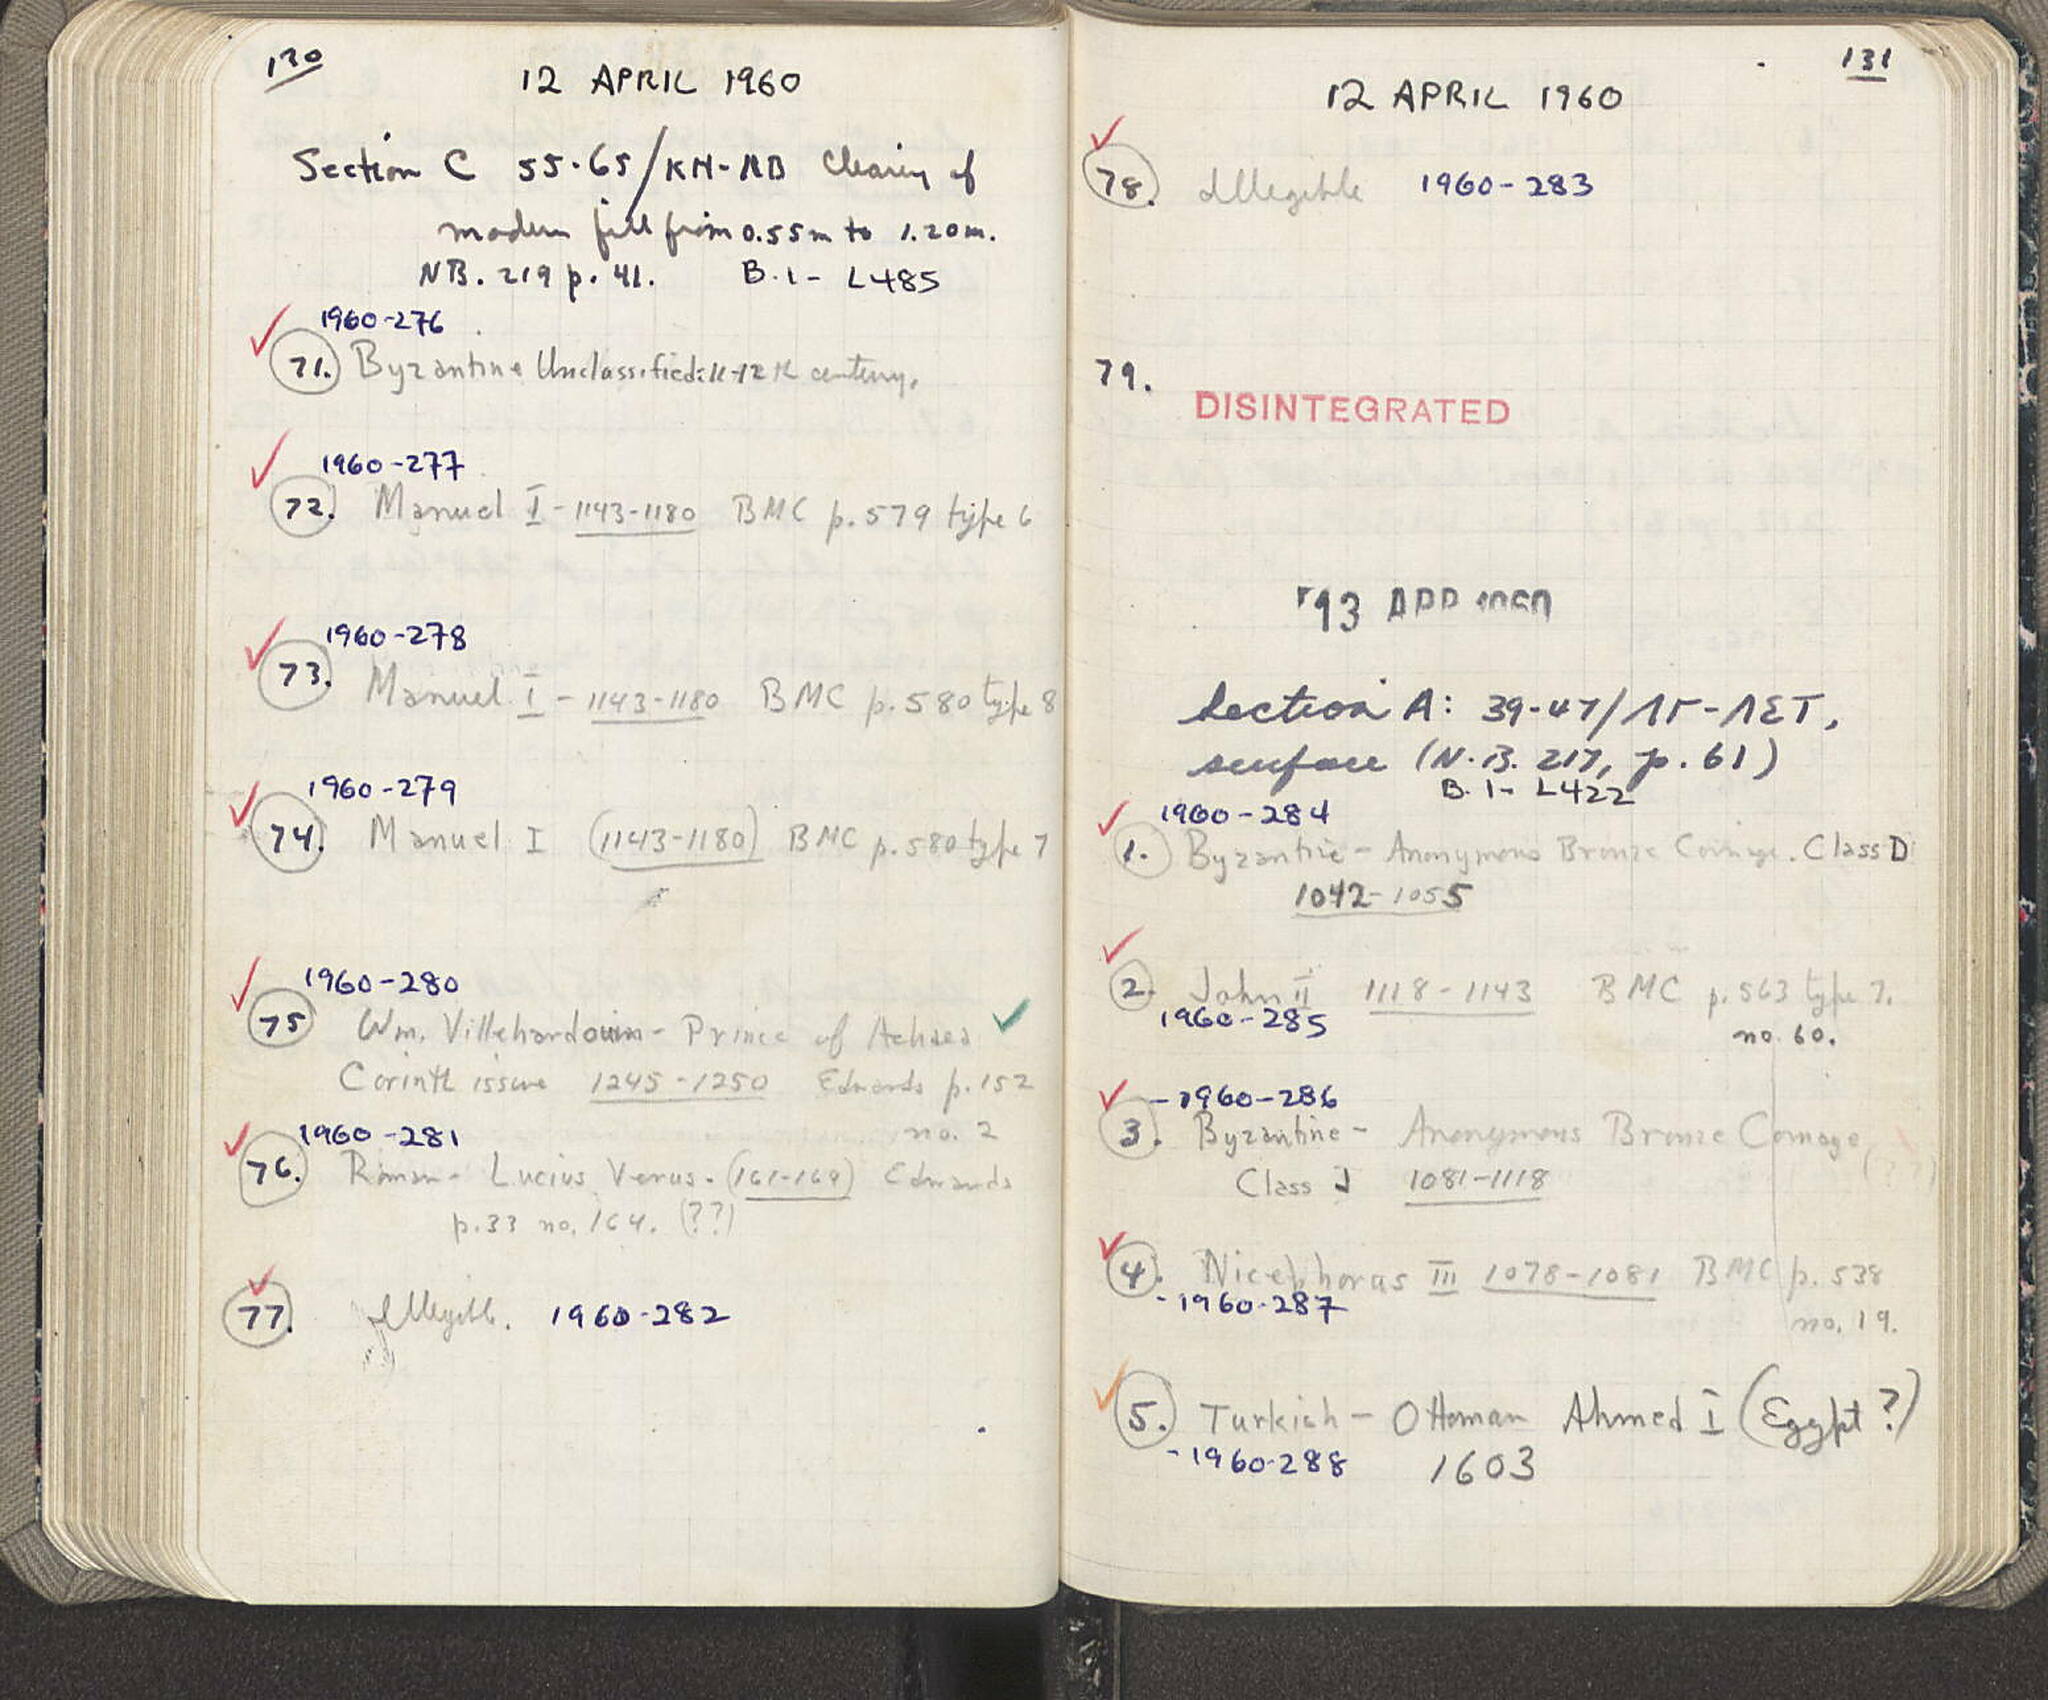 130
12 APRIL 1960
Section C 55-65/KH-ΛB Clearing of
modern fill from 0.55m to 1.20m.
NB. 219 p. 41. B.1- L485
1960-276
71. Byzantine Unclassified: 11-12th century.
1960-277
72. Manuel I - 1143-1180 BMC p. 579 type 6
1960-278
73. Manuel I - 1143-1180 BMC p. 580 type 8
1960-279
74. Manuel I (1143-1180) BMC p. 580 type 7
1960-280
75 Wm. Villehardouin - Prince of Achaea
Corinth issue 1245-1250 Edwards p. 152
no. 2
1960-281
76. Roman - Lucius Verus. (161-169) Edwards
p. 33 no. 164. (??)
77. Illegible. 1960-282
131
12 APRIL 1960
78. Illegible 1960-283
79.
DISINTEGRATED
13 APR 1960
Section A: 39-47/ΛΓ-ΛΣΤ,
surface (N.B. 217, p. 61)
B.1- L422
1960-284
1. Byzantine - Anonymous Bronze Coinage. Class D
1042-1055
2. John II 1118-1143 BMC p. 563 type 7.
1960-285 no. 60.
-1960-286
3. Byzantine - Anonymous Bronze Coinage
(??)
Class J 1081-1118
4. Nicephorus III 1078-1081 BMC p. 538
-1960-287
no. 19.
5. Turkish - Ottoman Ahmed I (Egypt?)
-1960-288 1603